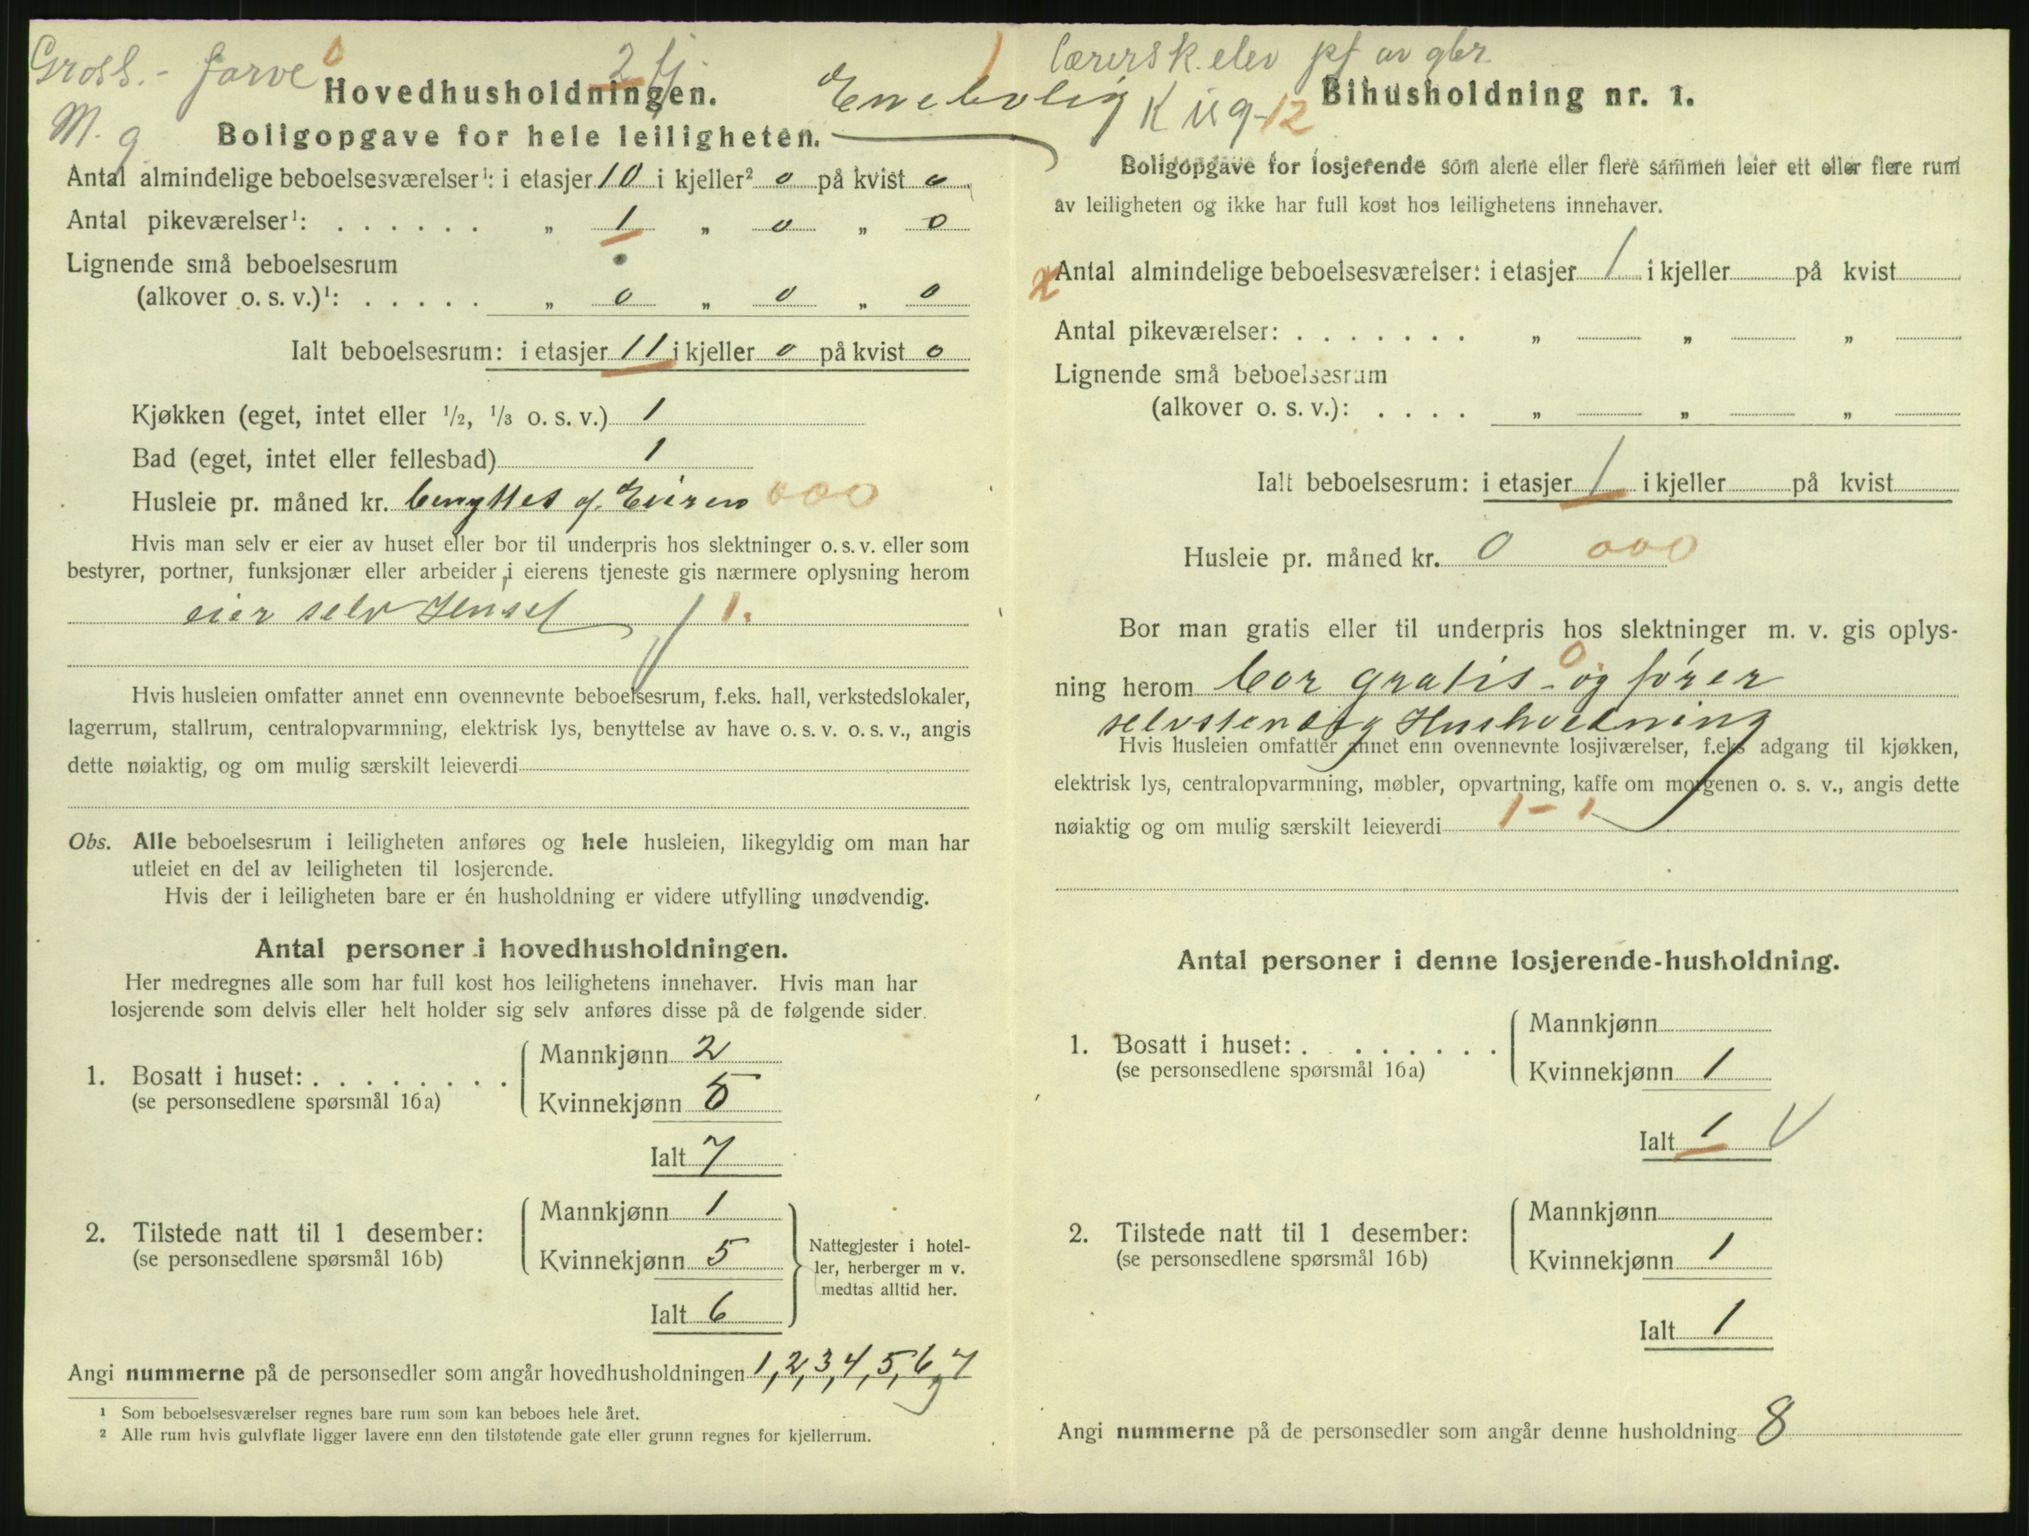 Gross. - farve 0 2 tj.
Hovedhusholdningen.
M. g
Enebolig
Boligopgave for hele leiligheten.
Antal almindelige beboelsesværelser¹: i etasjer 10 i kjeller² 0 på kvist 0
Antal pikeværelser¹: . . . . . . „ 1 „ 0 „ 0
Lignende små beboelsesrum
(alkover o. s. v.)¹: . . . . . „ 0 „ 0 „ 0
Ialt beboelsesrum: i etasjer 11 i kjeller 0 på kvist 0
Kjøkken (eget, intet eller ½, ⅓ o. s. v.) 1
Bad (eget, intet eller fellesbad) 1
Husleie pr. måned kr. benyttes af Eieren 000
Hvis man selv er eier av huset eller bor til underpris hos slektninger o. s. v. eller som
bestyrer, portner, funksjonær eller arbeider i eierens tjeneste gis nærmere oplysning herom
eier selv Huset 1.
Hvis husleien omfatter annet enn ovennevnte beboelsesrum, f.eks. hall, verkstedslokaler,
lagerrum, stallrum, centralopvarmning, elektrisk lys, benyttelse av have o. s. v. o. s. v., angis
dette nøiaktig, og om mulig særskilt leieverdi
Obs. Alle beboelsesrum i leiligheten anføres og hele husleien, likegyldig om man har
utleiet en del av leiligheten til losjerende.
Hvis der i leiligheten bare er én husholdning er videre utfylling unødvendig.
Antal personer i hovedhusholdningen.
Her medregnes alle som har full kost hos leilighetens innehaver. Hvis man har
losjerende som delvis eller helt holder sig selv anføres disse på de følgende sider.
1. Bosatt i huset: . . . . . . . .
(se personsedlene spørsmål 16a)
Mannkjønn 2
Kvinnekjønn 5
Ialt 7
2. Tilstede natt til 1 desember:
(se personsedlene spørsmål 16b)
Mannkjønn 1
Kvinnekjønn 5
Ialt 6
Nattegjester i hotel-
ler, herberger m v.
medtas alltid her.
Angi nummerne på de personsedler som angår hovedhusholdningen 1, 2, 3, 4, 5, 6, 7
¹ Som beboelsesværelser regnes bare rum som kan beboes hele året.
² Alle rum hvis gulvflate ligger lavere enn den tilstøtende gate eller grunn regnes for kjellerrum.
Lærersk. elev pf av gbr.
K ug-12
Bihusholdning nr. 1.
Boligopgave for losjerende som alene eller flere sammen leier ett eller flere rum
av leiligheten og ikke har full kost hos leilighetens innehaver.
x Antal almindelige beboelsesværelser: i etasjer 1 i kjeller på kvist
Antal pikeværelser: . . . . . . . „ „ „
Lignende små beboelsesrum
(alkover o. s. v.): . . . . „ „ „
Ialt beboelsesrum: i etasjer 1 i kjeller på kvist
Husleie pr. måned kr. 0 000
Bor man gratis eller til underpris hos slektninger m. v. gis oplys-
ning herom bor gratis - og fører
selvstendig Husholdning
Hvis husleien omfatter annet enn ovennevnte losjiværelser, f.eks adgang til kjøkken,
elektrisk lys, centralopvarmning, møbler, opvartning, kaffe om morgenen o. s. v., angis dette
nøiaktig og om mulig særskilt leieverdi 1 - 1
Antal personer i denne losjerende-husholdning.
1. Bosatt i huset: . . . . . . . .
(se personsedlene spørsmål 16a)
Mannkjønn
Kvinnekjønn 1
Ialt 1
2. Tilstede natt til 1 desember:
(se personsedlene spørsmål 16b)
Mannkjønn
Kvinnekjønn 1
Ialt 1
Angi nummerne på de personsedler som angår denne husholdning 8